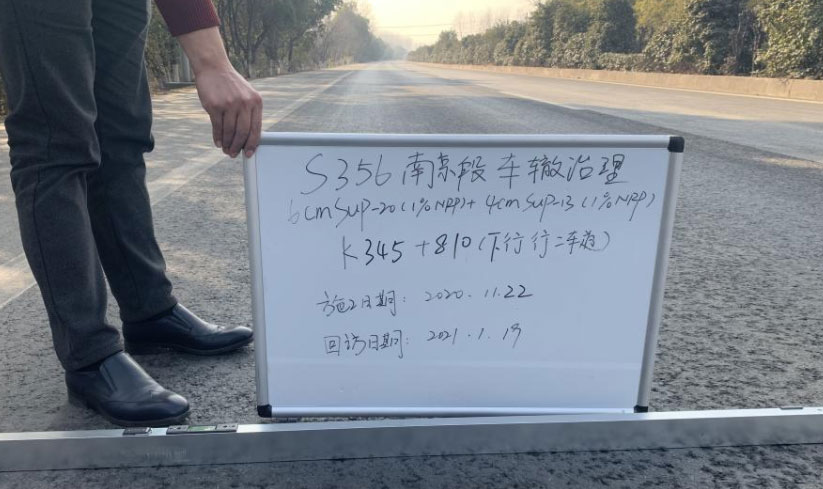 S356南京段车辙治理
6cmSup-20(1%NRP)+4cmSup-13(1%NRP)
K345+810(下行行二车道)
施工日期：2020.11.22
回访日期：2021.1.19